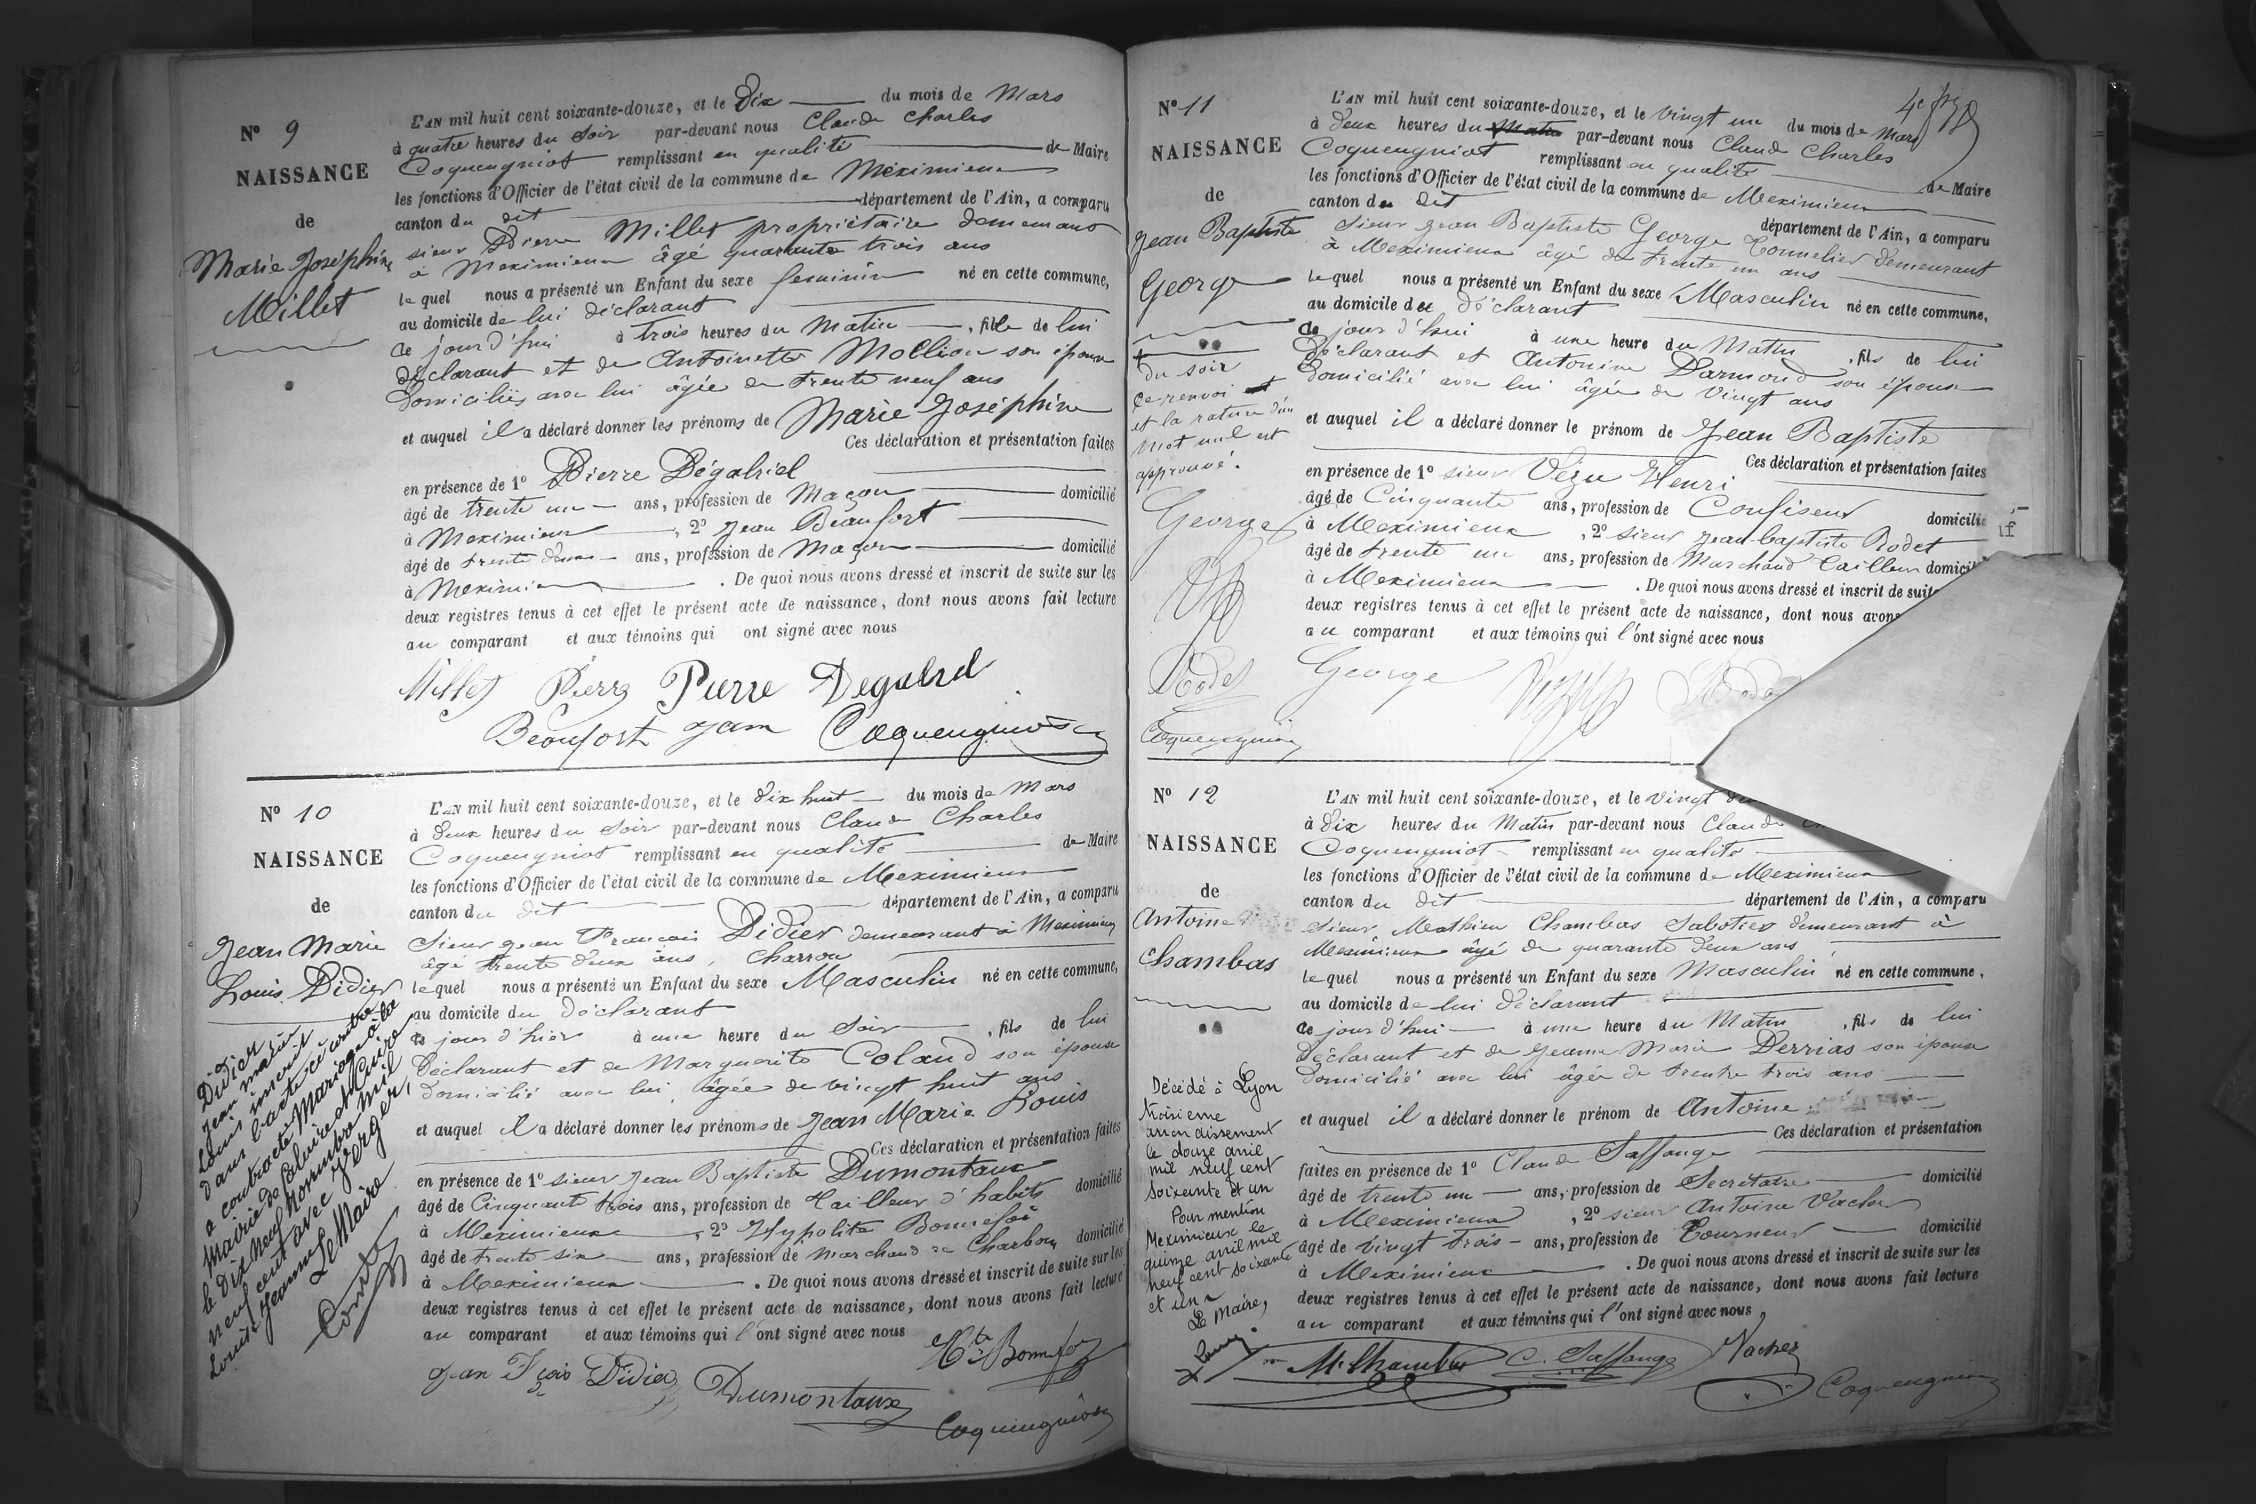 N° 9
NAISSANCE
de
Marie Joséphine
Millet
L'AN mil huit cent soixante-douze, et le Dix du mois de Mars
à quatre heures du Soir par-devant nous Claude Charles
Coquengniot remplissant en qualité de Maire
les fonctions d'Officier de l'état civil de la commune de Meximieux
canton du dit département de l'Ain, a comparu
sieur Pierre Millet propriétaire demeurant
à Meximieux âgé quarante trois ans
lequel nous a présenté un Enfant du sexe feminin né en cette commune,
au domicile de lui déclarant
ce jour d'hui à trois heures du Matin, fille de lui
déclarant et de Antoinette Mollion son épouse
Domiciliés avec lui âgée de trente neuf ans
et auquel il a déclaré donner les prénoms de Marie Joséphine
Ces déclaration et présentation faites
en présence de 1° Pierre Dégabriel
âgé de trente un ans, profession de Maçon domicilié
à Meximieux, 2° Jean Beaufort
âgé de trente deux ans, profession de Maçon domicilié
à Meximieux. De quoi nous avons dressé et inscrit de suite sur les
deux registres tenus à cet effet le présent acte de naissance, dont nous avons fait lecture
au comparant et aux témoins qui ont signé avec nous
Millet Pierre Pierre
Beaufort Jean Coquengniot
N° 10
NAISSANCE
de
Jean Marie
Louis Didier
Didier
Jean Marie
Louis inscrit
dans l'acte ci-contre
a contracté Mariage à la
Mairie de Caluire et Cuire
le Dix neuf Novembre mil
neuf cent avec Verger,
Louise Jeanne
Le Maire
L'AN mil huit cent soixante-douze, et le dix huit du mois de Mars
à deux heures du Soir par-devant nous Claude Charles
Coquengniot remplissant en qualité de Maire
les fonctions d'Officier de l'état civil de la commune de Meximieux
canton du dit département de l'Ain, a comparu
Sieur Jean François Didier demeurant à Meximieux
âgé trente deux ans, Charron
lequel nous a présenté un Enfant du sexe Masculin né en cette commune,
au domicile du déclarant
ce jour d'hier à une heure du Soir, fils de lui
Déclarant et de Marguerite Coland son épouse
domicilié avec lui, âgée de vingt huit ans
et auquel il a déclaré donner les prénoms de Jean Marie Louis
Ces déclaration et présentation faites
en présence de 1° sieur Jean Baptiste Dumontaux
âgé de Cinquante trois ans, profession de Tailleur d'habits domicilié
à Meximieux, 2° Hypolite Bonnefoi
âgé de trente six ans, profession de Marchand de Charbon domicilié
à Meximieux. De quoi nous avons dressé et inscrit de suite sur les
deux registres tenus à cet effet le présent acte de naissance, dont nous avons fait lecture
au comparant et aux témoins qui l'ont signé avec nous
Jean Fçois Didier Dumontaux Hte Bonnefoy
Coquengniot
N° 11
NAISSANCE
de
Jean Baptiste
George
du soir
Ce renvoi
et la rature d'un
mot nul est
approuvé.
George
Rodet
Coquengniot
L'AN mil huit cent soixante-douze, et le Vingt un du mois de Mars
à Deux heures du Matin par-devant nous Claude Charles
Coquengniot remplissant en qualité de Maire
les fonctions d'Officier de l'état civil de la commune de Meximieux
canton du dit département de l'Ain, a comparu
Sieur Jean Baptiste George Tonnelier demeurant
à Meximieux âgé de trente un ans
lequel nous a présenté un Enfant du sexe Masculin né en cette commune,
au domicile du Déclarant
ce jour d'hui à une heure du Matin, fils de lui
Déclarant et Antonine Darmond son épouse
Domicilié avec lui âgée de Vingt ans
et auquel il a déclaré donner le prénom de Jean Baptiste
Ces déclaration et présentation faites
en présence de 1° sieur Vézu Henri
âgé de Cinquante ans, profession de Confiseur domicilié
à Meximieux, 2° sieur Jean-baptiste Rodet
âgé de trente un ans, profession de Marchand Tailleur
à Meximieux. De quoi nous avons dressé et inscrit de
deux registres tenus à cet effet le présent acte de naissance, dont nous avons
au comparant et aux témoins qui l'ont signé avec nous
George
N° 12
NAISSANCE
de
Antoine
Chambas
Décédé à Lyon
troisième
arrondissement
le douze avril
mil neuf cent
soixante et un
Pour mention
Meximieux le
quinze avril mil
neuf cent soixante
et un
Le Maire,
L'AN mil huit cent soixante-douze, et le Vingt
à Dix heures du Matin par-devant nous Claude
Coquengniot remplissant en qualité
les fonctions d'Officier de l'état civil de la commune de Meximieux
canton du dit département de l'Ain, a comparu
Sieur Mathieu Chambas Sabotier demeurant à
Meximieux âgé de quarante deux ans
lequel nous a présenté un Enfant du sexe Masculin né en cette commune,
au domicile de lui déclarant
ce jour d'hui à une heure du Matin, fils de lui
Déclarant et de Jeanne Marie Perrias son épouse
Domicilié avec lui âgée de trente trois ans
et auquel il a déclaré donner le prénom de Antoine
Ces déclaration et présentation
faites en présence de 1° Claude Saffange
âgé de trente un ans, profession de Secrétaire domicilié
à Meximieux, 2° sieur Antoine Vacher
âgé de Vingt trois ans, profession de Tourneur domicilié
à Meximieux. De quoi nous avons dressé et inscrit de suite sur les
deux registres tenus à cet effet le présent acte de naissance, dont nous avons fait lecture
au comparant et aux témoins qui l'ont signé avec nous
M. Chambas C. Saffange Vacher
Coquengniot